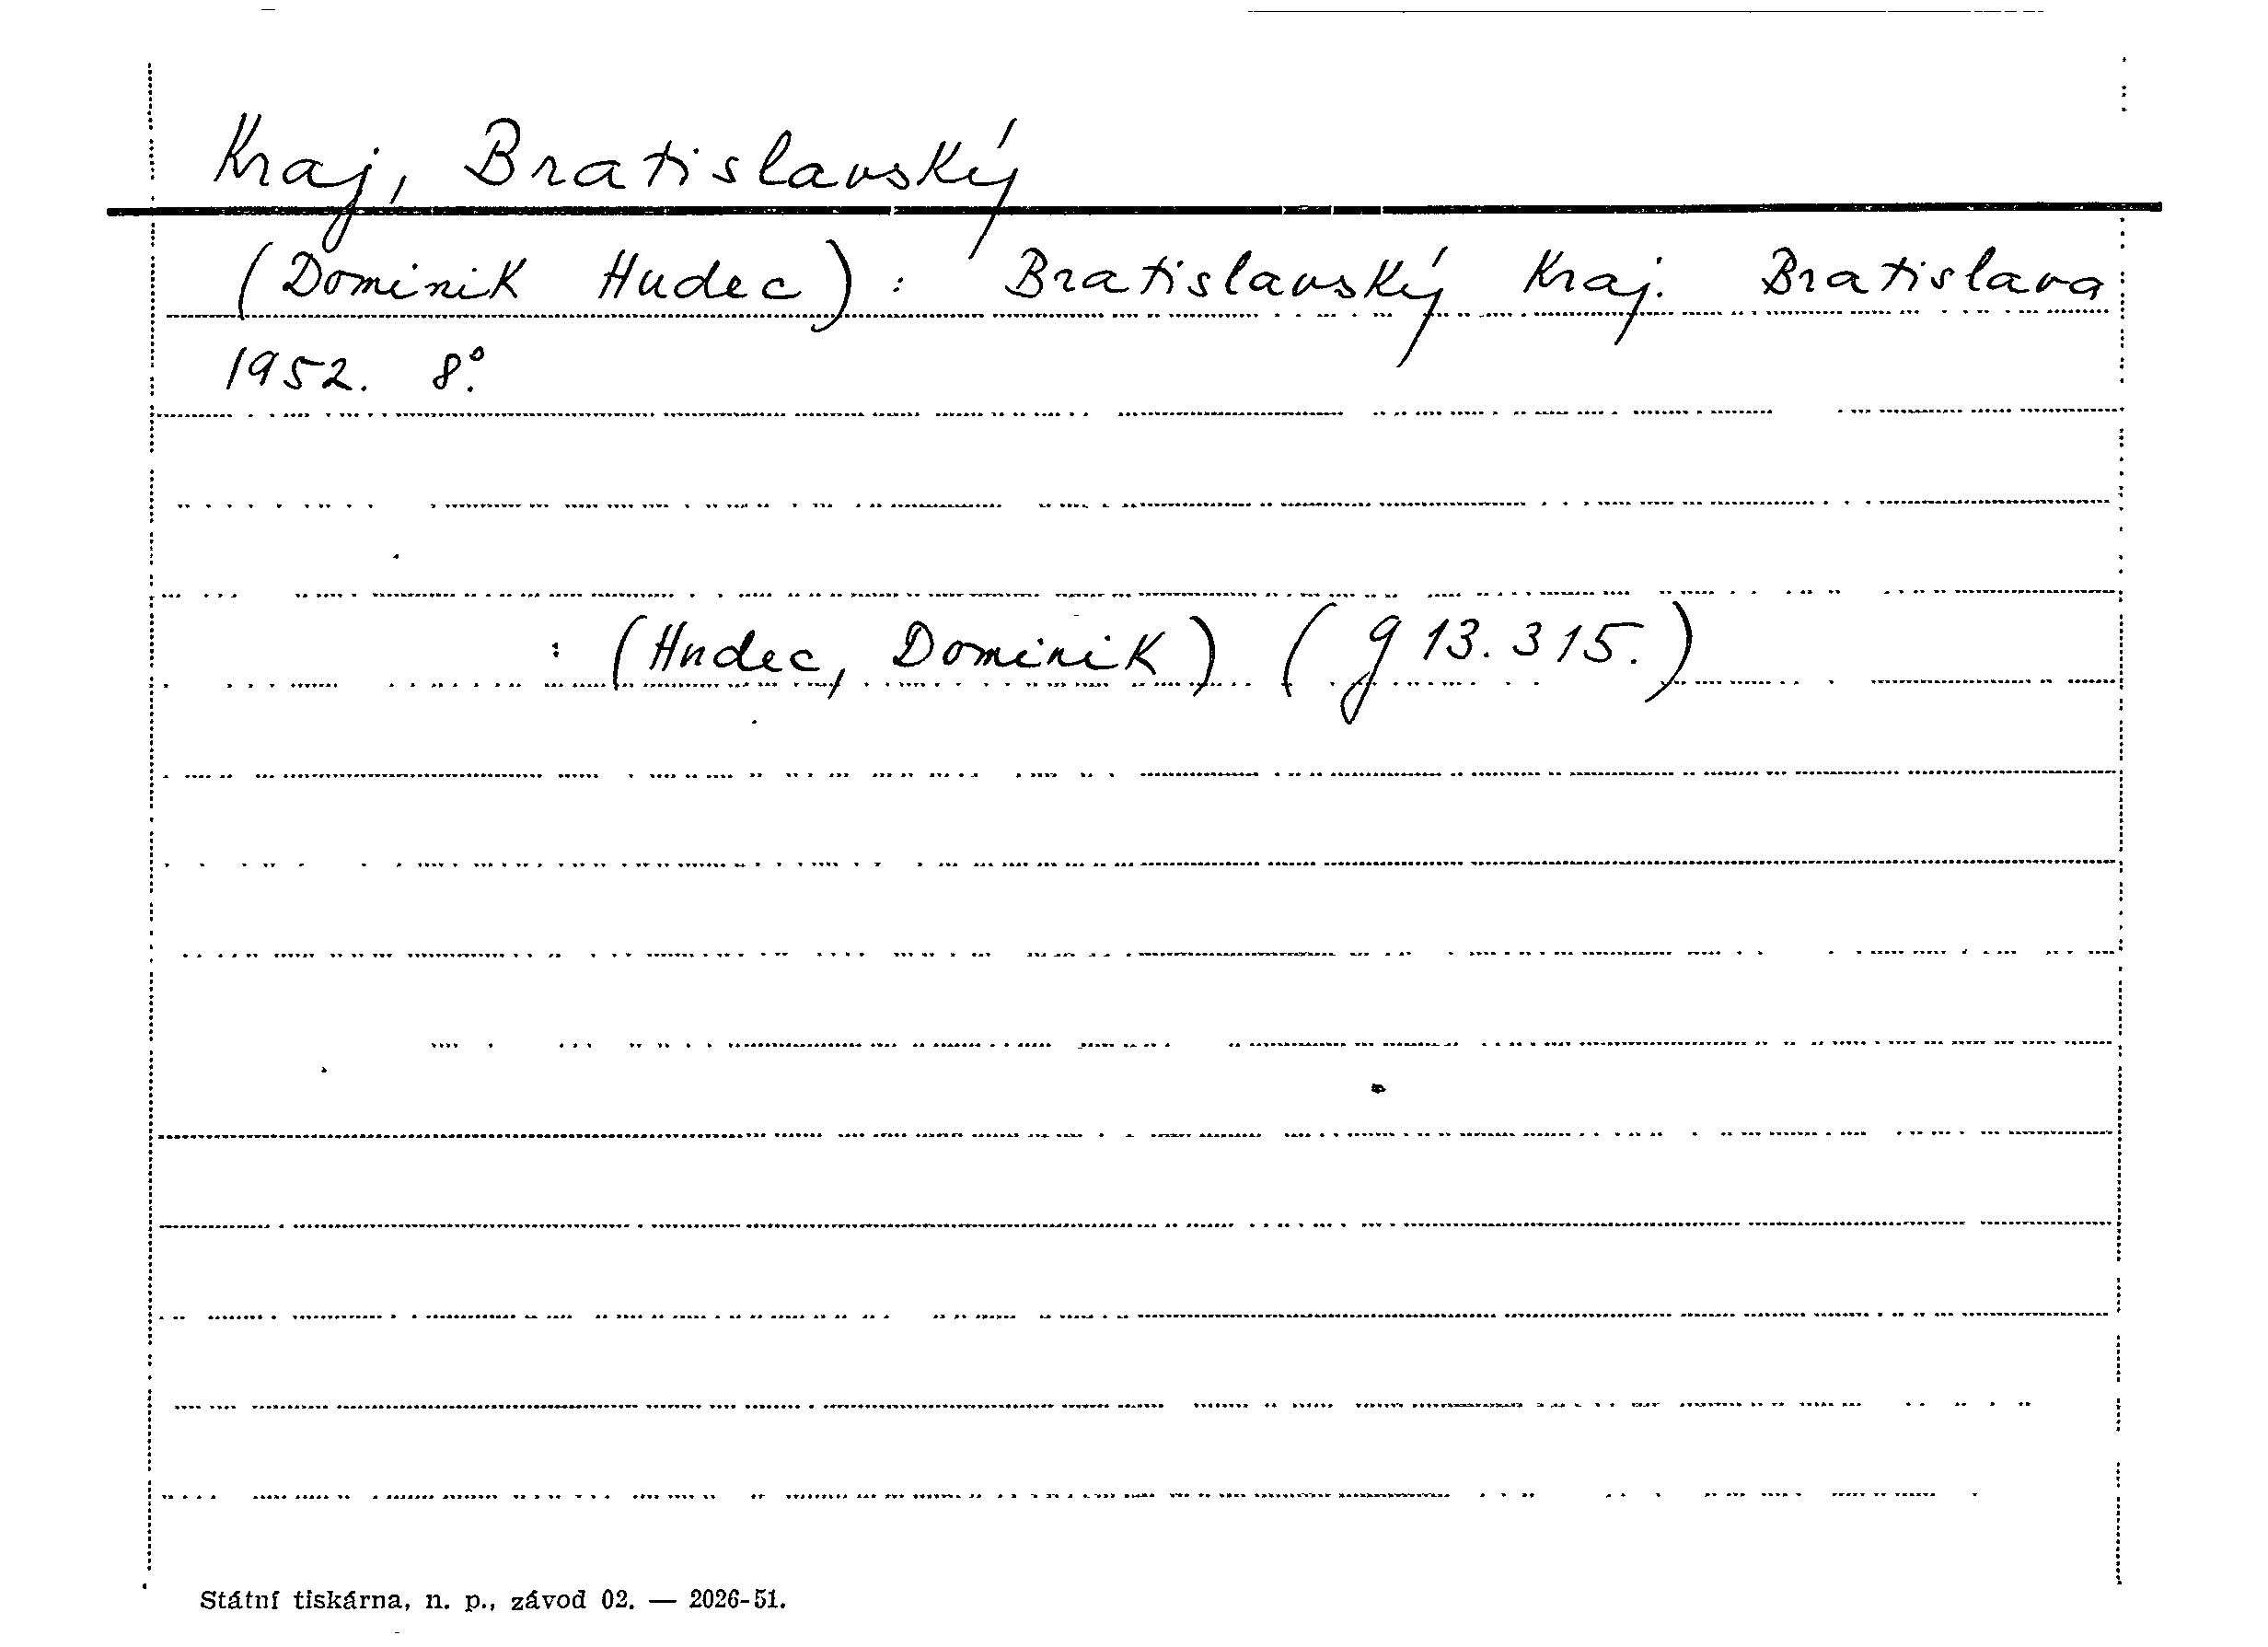 Kraj, Bratislavský
(Dominik Hudec): Bratislavský Kraj. Bratislava
1952. 8°.
: (Hudec, Dominik) (g 13.315.)
Státní tiskárna, n. p., závod 02. — 2026-51.